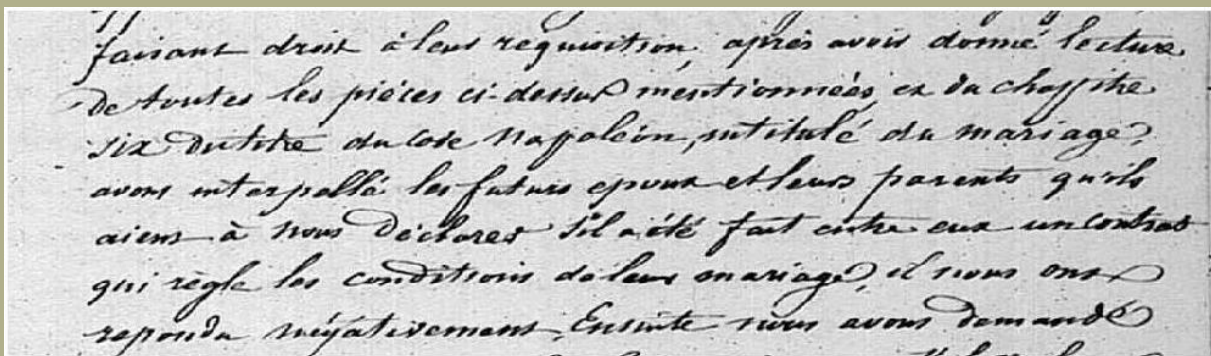 faisant droit à leur requisition, après avoir donné lecture
de toutes les pièces ci-dessus mentionnées, et du chapitre
six du titre du Code Napoléon, intitulé du mariage,
avons interpellé les futurs epoux et leurs parents qu'ils
aient à nous déclarer s'il a été fait entre eux un contrat
qui règle les conditions de leur mariage, il nous ont
repondu négativement. Ensuite nous avons demandé